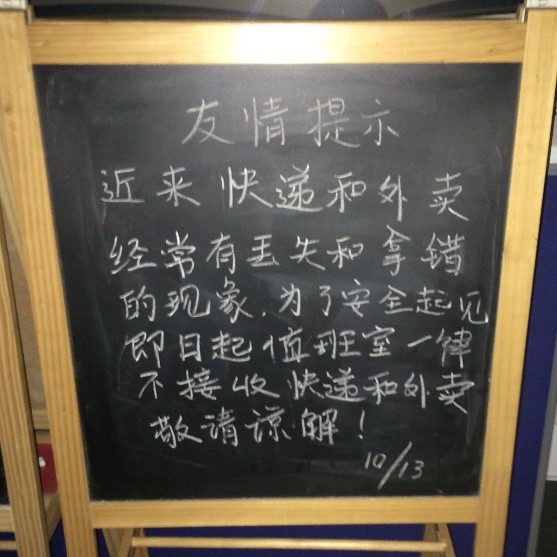 友情提示
近来快递和外卖
经常有丢失和拿错
的现象.为了安全起见
即日起值班室一律
不接收快递和外卖
敬请谅解！
10/13